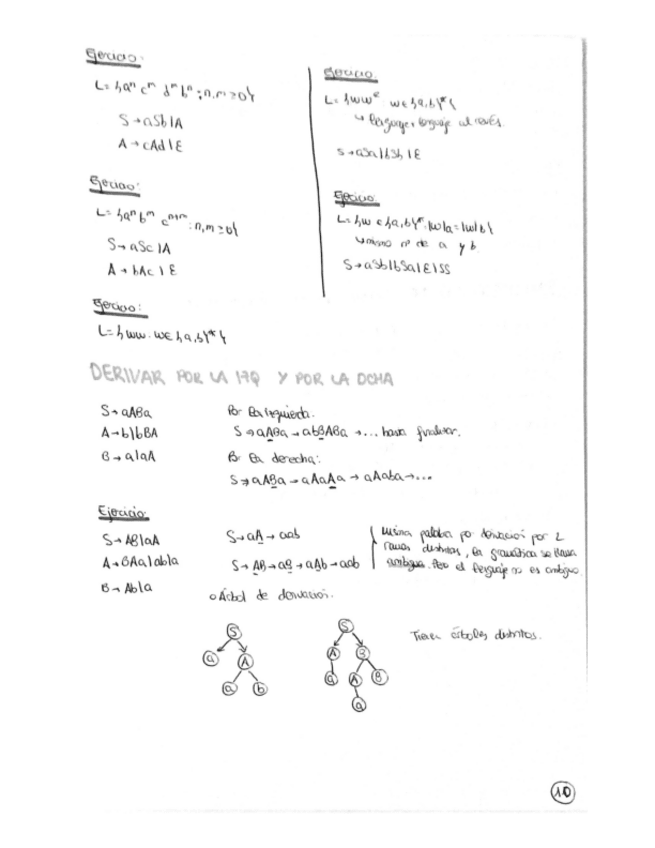 Ejercicio:
L = {aⁿ cᵐ dᵐ bⁿ ; n,m ≥ 0}
S → aSb | A
A → cAd | ε
Ejercicio:
L = {aⁿ bᵐ cⁿ⁺ᵐ ; n,m ≥ 0}
S → aSc | A
A → bAc | ε
Ejercicio:
L = {ww · w ∈ {a,b}* }
Ejercicio.
L = {ww w ∈ {a,b}* }
lenguaje al revés.
S → aSa | bSb | ε
Ejercicio
L = {w ∈ {a,b}* · |w|a = |w|b}
mismo nº de a y b
S → aSb | bSa | ε | SS
DERIVAR POR LA IZQ Y POR LA DCHA
S → aABa
A → b | bBA
B → a | aA
Por la izquierda.
S → aABa → abBABa → ... hasta finalizar.
Por la derecha:
S → aABa → aAaAa → aAaba → ...
Ejercicio:
S → AB | aA
A → BAa | ab | a
B → Ab | a
S → aA → aab
S → AB → aB → aAb → aab
misma palabra por derivación por 2
ramas distintas, la gramática se llama
ambigua. Pero el lenguaje no es ambiguo.
o Árbol de derivación.
S
a A
a b
S
A B
a A B
a
Tienen árboles distintos.
10